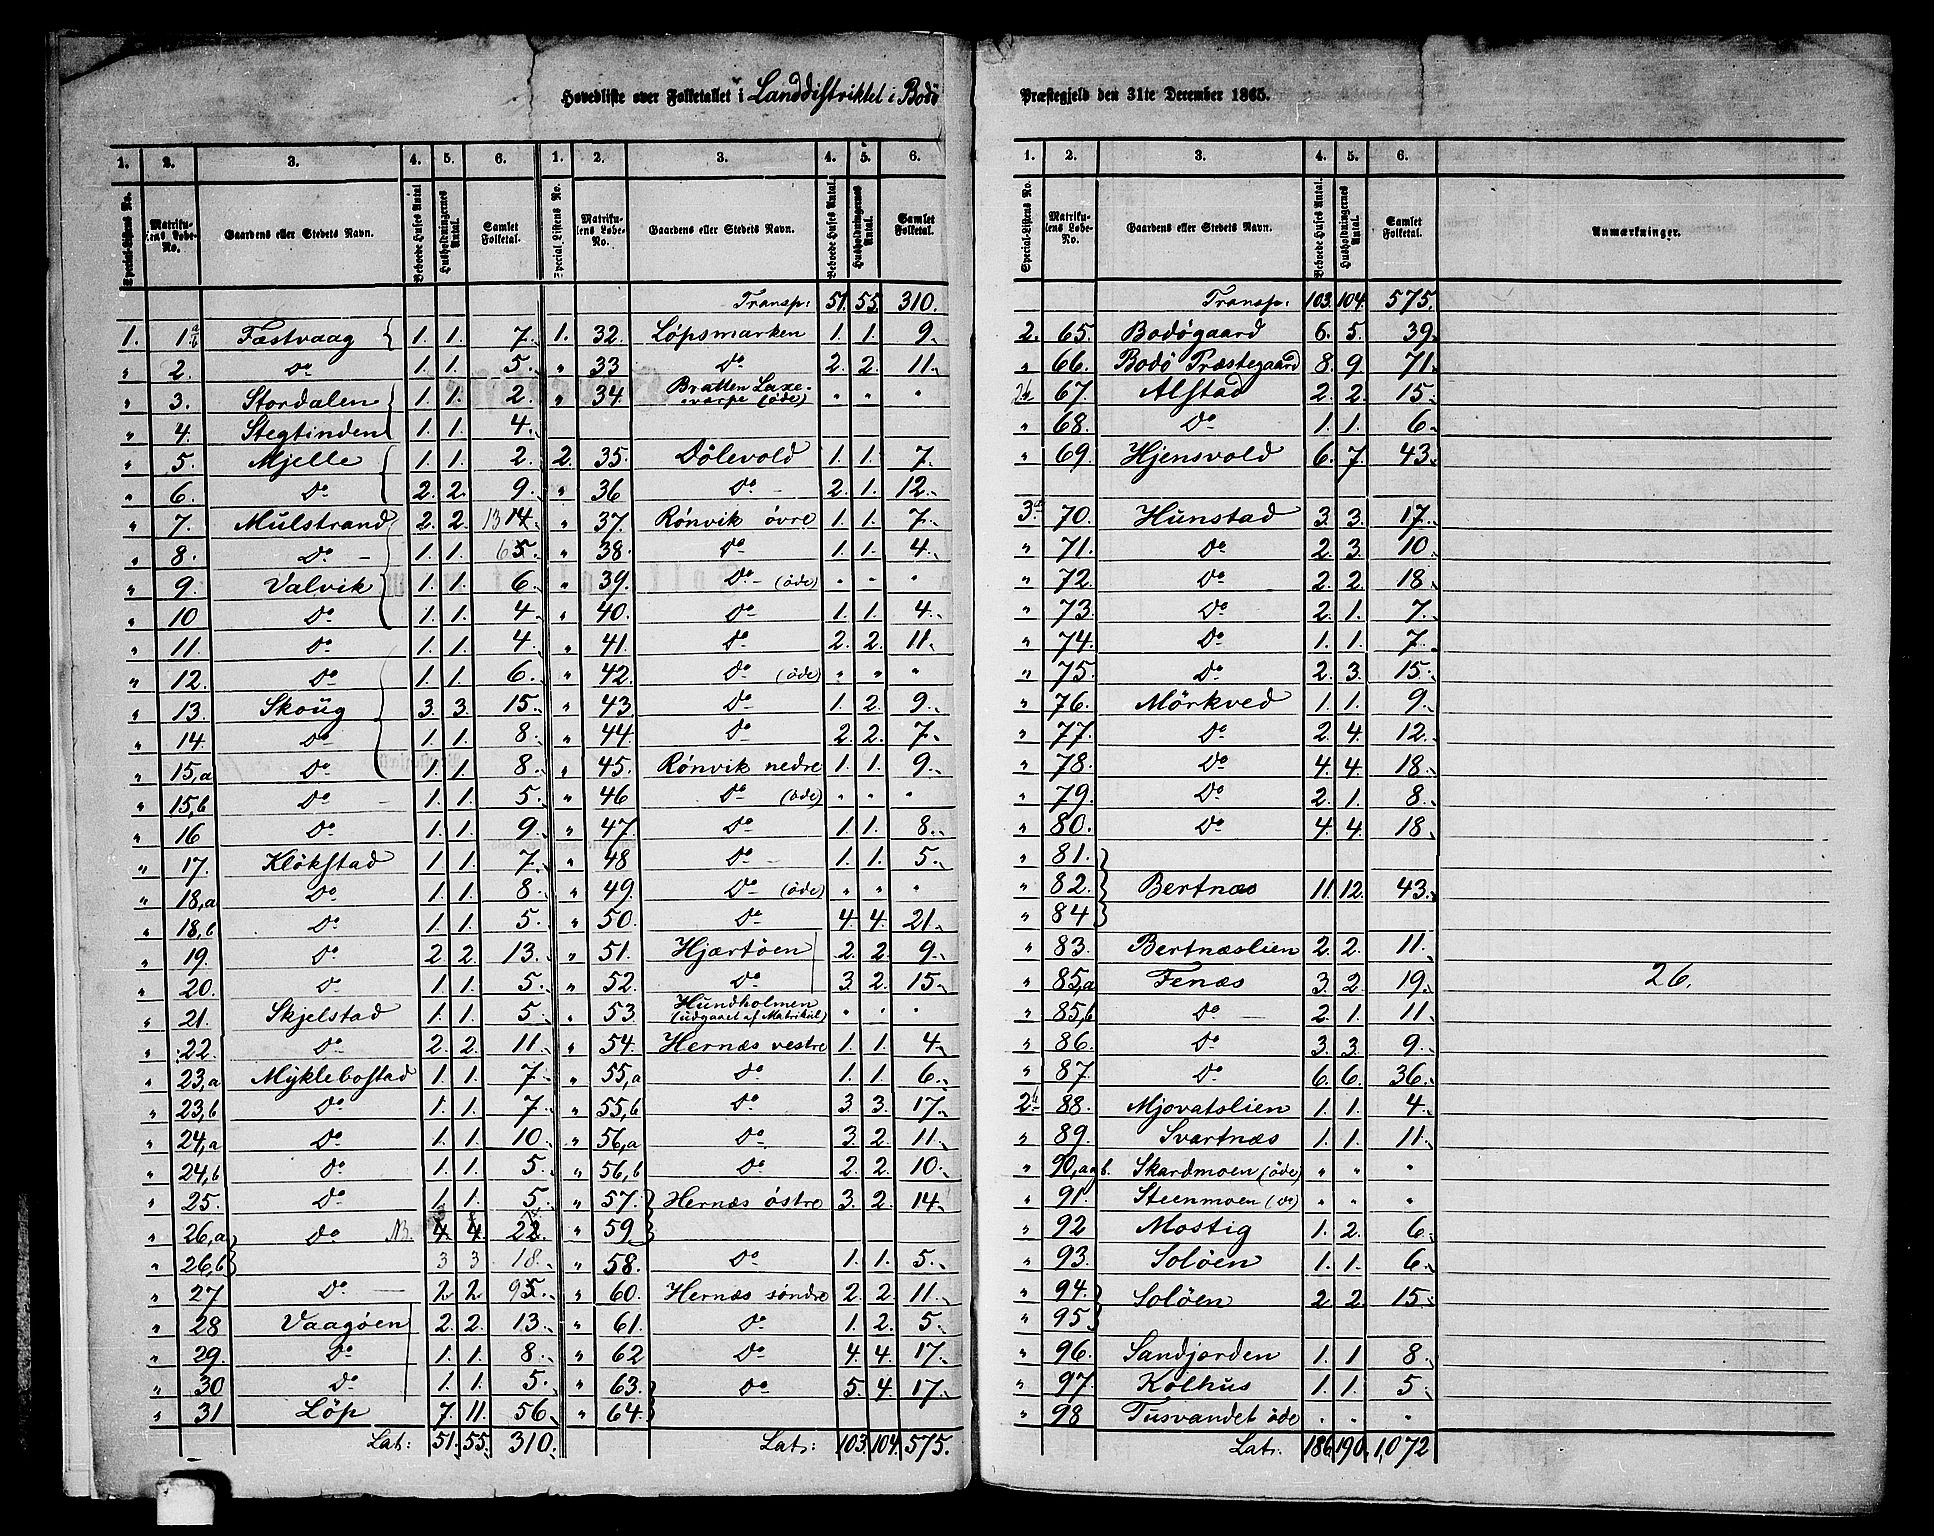 Hovedliste over Folketallet i Landdistriktet i Bodö Præstegjeld den 31te December 1865.
1. 2. 3. 4. 5. 6. 1. 2. 3. 4. 5. 6.
Special-Listens No. Matrikulens Løbe-No. Gaardens eller Stedets Navn. Beboede Huses Antal. Husholdningernes Antal. Samlet Folketal. Special-Listens No. Matrikulens Løbe-No. Gaardens eller Stedets Navn. Beboede Huses Antal. Husholdningernes Antal. Samlet Folketal.
Transp: 51. 55. 310.
1. 1 Fæstvaag 1. 1. 7. 1. 32. Löpsmarken 1. 1. 9.
" 2. Do 1. 1. 5. " 33 Do 2. 2. 11.
" 3. Stordalen 1. 1. 2. " 34. Bratten Laxeværpe (öde) " " "
" 4. Stegtinden 1. 1. 4.
" 5. Mjelle 1. 1. 2. 2. 35. Dölevold 1. 1. 7.
" 6. Do 2. 2. 9. " 36 Do 2. 1. 12.
" 7. Mulstrand 2. 2. 13 14. " 37. Rönvik övre 1. 1. 7.
" 8. Do 1. 1. 6 5. " 38. Do 1. 1. 4.
" 9. Valvik 1. 1. 6. " 39. Do (öde) " " "
" 10 Do 1. 1. 4. " 40. Do 1. 1. 4.
" 11. Do 1. 1. 4. " 41. Do 2. 2. 11.
" 12. Do 1. 1. 6. " 42. Do (öde) " " "
" 13. Skoug 3. 3. 15. " 43. Do 1. 2. 9.
" 14. Do 1. 1. 8. " 44. Do 2. 2. 7.
" 15,a Do 1. 1. 8. " 45. Rönvik nedre 1. 1. 9.
" 15,b Do 1. 1. 5. " 46 Do (öde) " " "
" 16 Do 1. 1. 9. " 47. Do 1. 1. 8.
" 17. Klökstad 1. 1. 7. " 48 Do 1. 1. 5.
" 18,a Do 1. 1. 8. " 49. Do (öde) " " "
" 18,b Do 1. 1. 5. " 50. Do 4. 4. 21.
" 19. Do 2. 2. 13. " 51. Hjærtöen 2. 2. 9.
" 20. Do 1. 1. 5. " 52. Do 3. 2. 15.
" 21. Skjelstad 1. 1. 5. " 53 Hundholmen (udgaaet af Matrikul) " " "
" 22. Do 2. 2. 11. " 54. Hernæs vestre 1. 1. 4.
" 23,a Myklebostad 1. 1. 7. " 55,a Do 1. 1. 6.
" 23,b Do 1. 1. 7. " 55,b Do 3. 3. 17.
" 24,a Do 1. 1. 10. " 56,a Do 3. 2. 11.
" 24,b Do 1. 1. 5. " 56,b Do 2. 2. 10.
" 25. Do 1. 1. 5. " 57. Hernæs östre 3. 2. 14.
" 26,a Do 4. 4 22. " 59.
" 26,b 3 3 18. " 58. Do 1. 1. 5.
" 27 Do 2. 2. 9 5. " 60. Hernæs söndre 2. 2. 11.
" 28 Vaagöen 2. 2. 13. " 61. Do 1. 2. 5.
" 29. Do 1. 1. 8. " 62 Do 4. 4. 17.
" 30 Do 1. 1. 5. " 63. Do 5. 4. 17.
" 31 Löp 7. 11. 56. " 64.
Lat: 51. 55. 310. Lat: 103. 104. 575.
1. 2. 3. 4. 5. 6.
Special-Listens No. Matrikulens Løbe-No. Gaardens eller Stedets Navn. Beboede Huses Antal. Husholdningernes Antal. Samlet Folketal. Anmærkninger.
Transp: 103. 104. 575.
2. 65. Bodögaard 6. 5. 39.
" 66. Bodö Præstegaard 8. 9. 71.
67. Alstad 2. 2. 15.
" 68. Do 1. 1. 6.
" 69. Hjensvold 6. 7. 43.
3. 70. Hunstad 3. 3. 17.
" 71. Do 2. 3. 10.
" 72. Do 2. 2. 18.
" 73. Do 2. 1. 7.
" 74. Do 1. 1. 7.
" 75. Do 2. 3. 15.
" 76. Mörkved 1. 1. 9.
" 77. Do 2. 4. 12.
" 78. Do 4. 4. 18.
" 79. Do 2. 1. 8.
" 80. Do 4. 4. 18.
" 81.
" 82. Bertnæs 11. 12. 43.
" 84
" 83. Bertnæslien 2. 2. 11.
" 85,a Fenæs 3. 2. 19. 26.
" 85,b Do 2. 1. 11.
" 86. Do 3. 3. 9.
" 87. Do 6. 6. 36.
2 88. Mjovatslien 1. 1. 4.
" 89. Svartnæs 1. 1. 11.
" 90, a og b. Skardmoen (öde) " " "
" 91. Steenmoen (do) " " "
" 92 Mostig 1. 2. 6.
" 93. Solöen 1. 1. 6.
" 94. Solöen 2. 2. 15.
" 95
" 96. Sandjorden 1. 1 8.
" 97. Kolhus 1. 1. 5.
" 98 Tusvandet öde " " "
Lat. 186. 190. 1,072